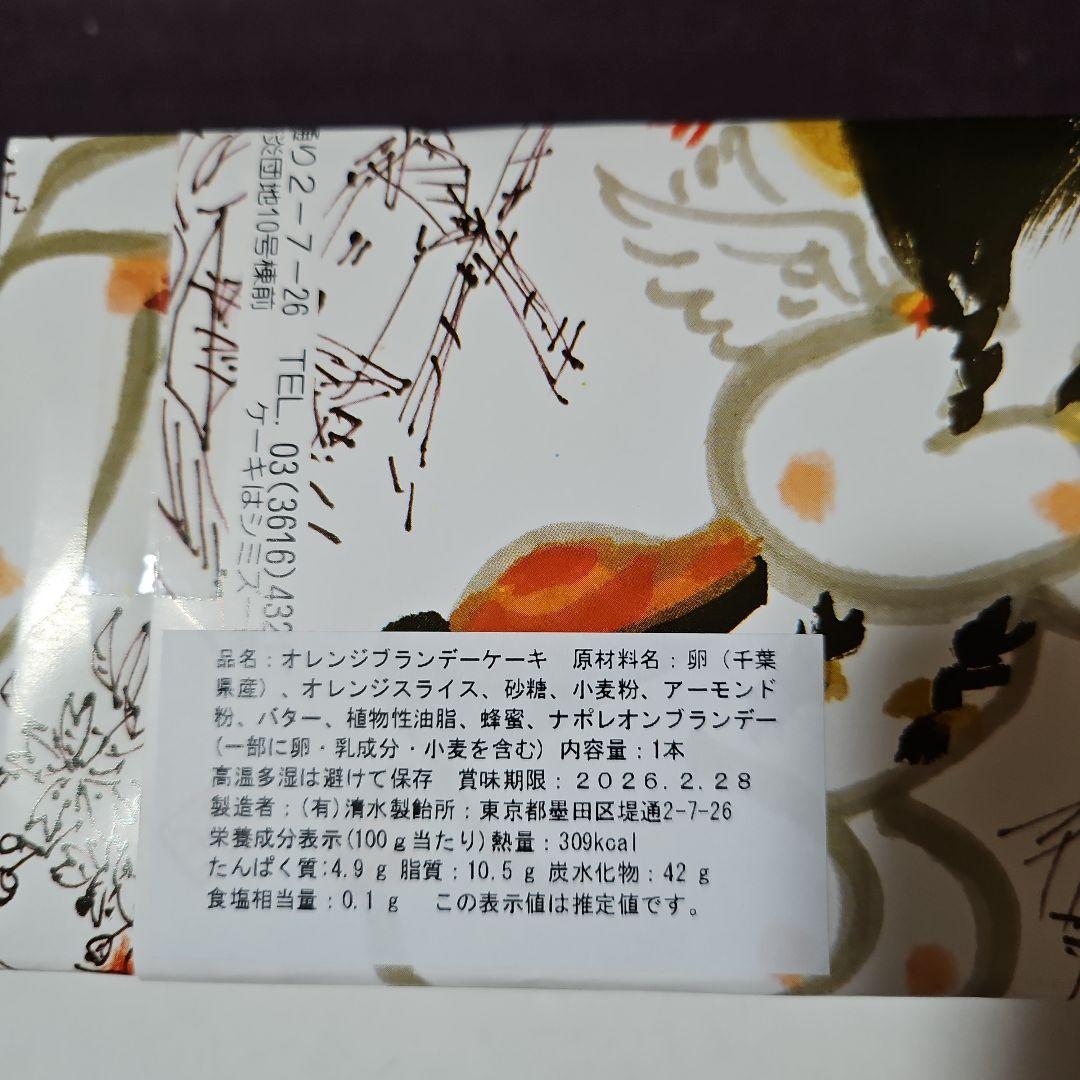 通り2-7-26 TEL. 03(3616)432
炎団地10号棟前 ケーキはシミズ
品名：オレンジブランデーケーキ 原材料名：卵（千葉
県産）、オレンジスライス、砂糖、小麦粉、アーモンド
粉、バター、植物性油脂、蜂蜜、ナポレオンブランデー
(一部に卵・乳成分・小麦を含む) 内容量：1本
高温多湿は避けて保存 賞味期限：２０２６.２.２８
製造者：(有)清水製飴所：東京都墨田区堤通2-7-26
栄養成分表示(100ｇ当たり)熱量：309kcal
たんぱく質:4.9ｇ 脂質：10.5ｇ 炭水化物：42ｇ
食塩相当量：0.1ｇ この表示値は推定値です。